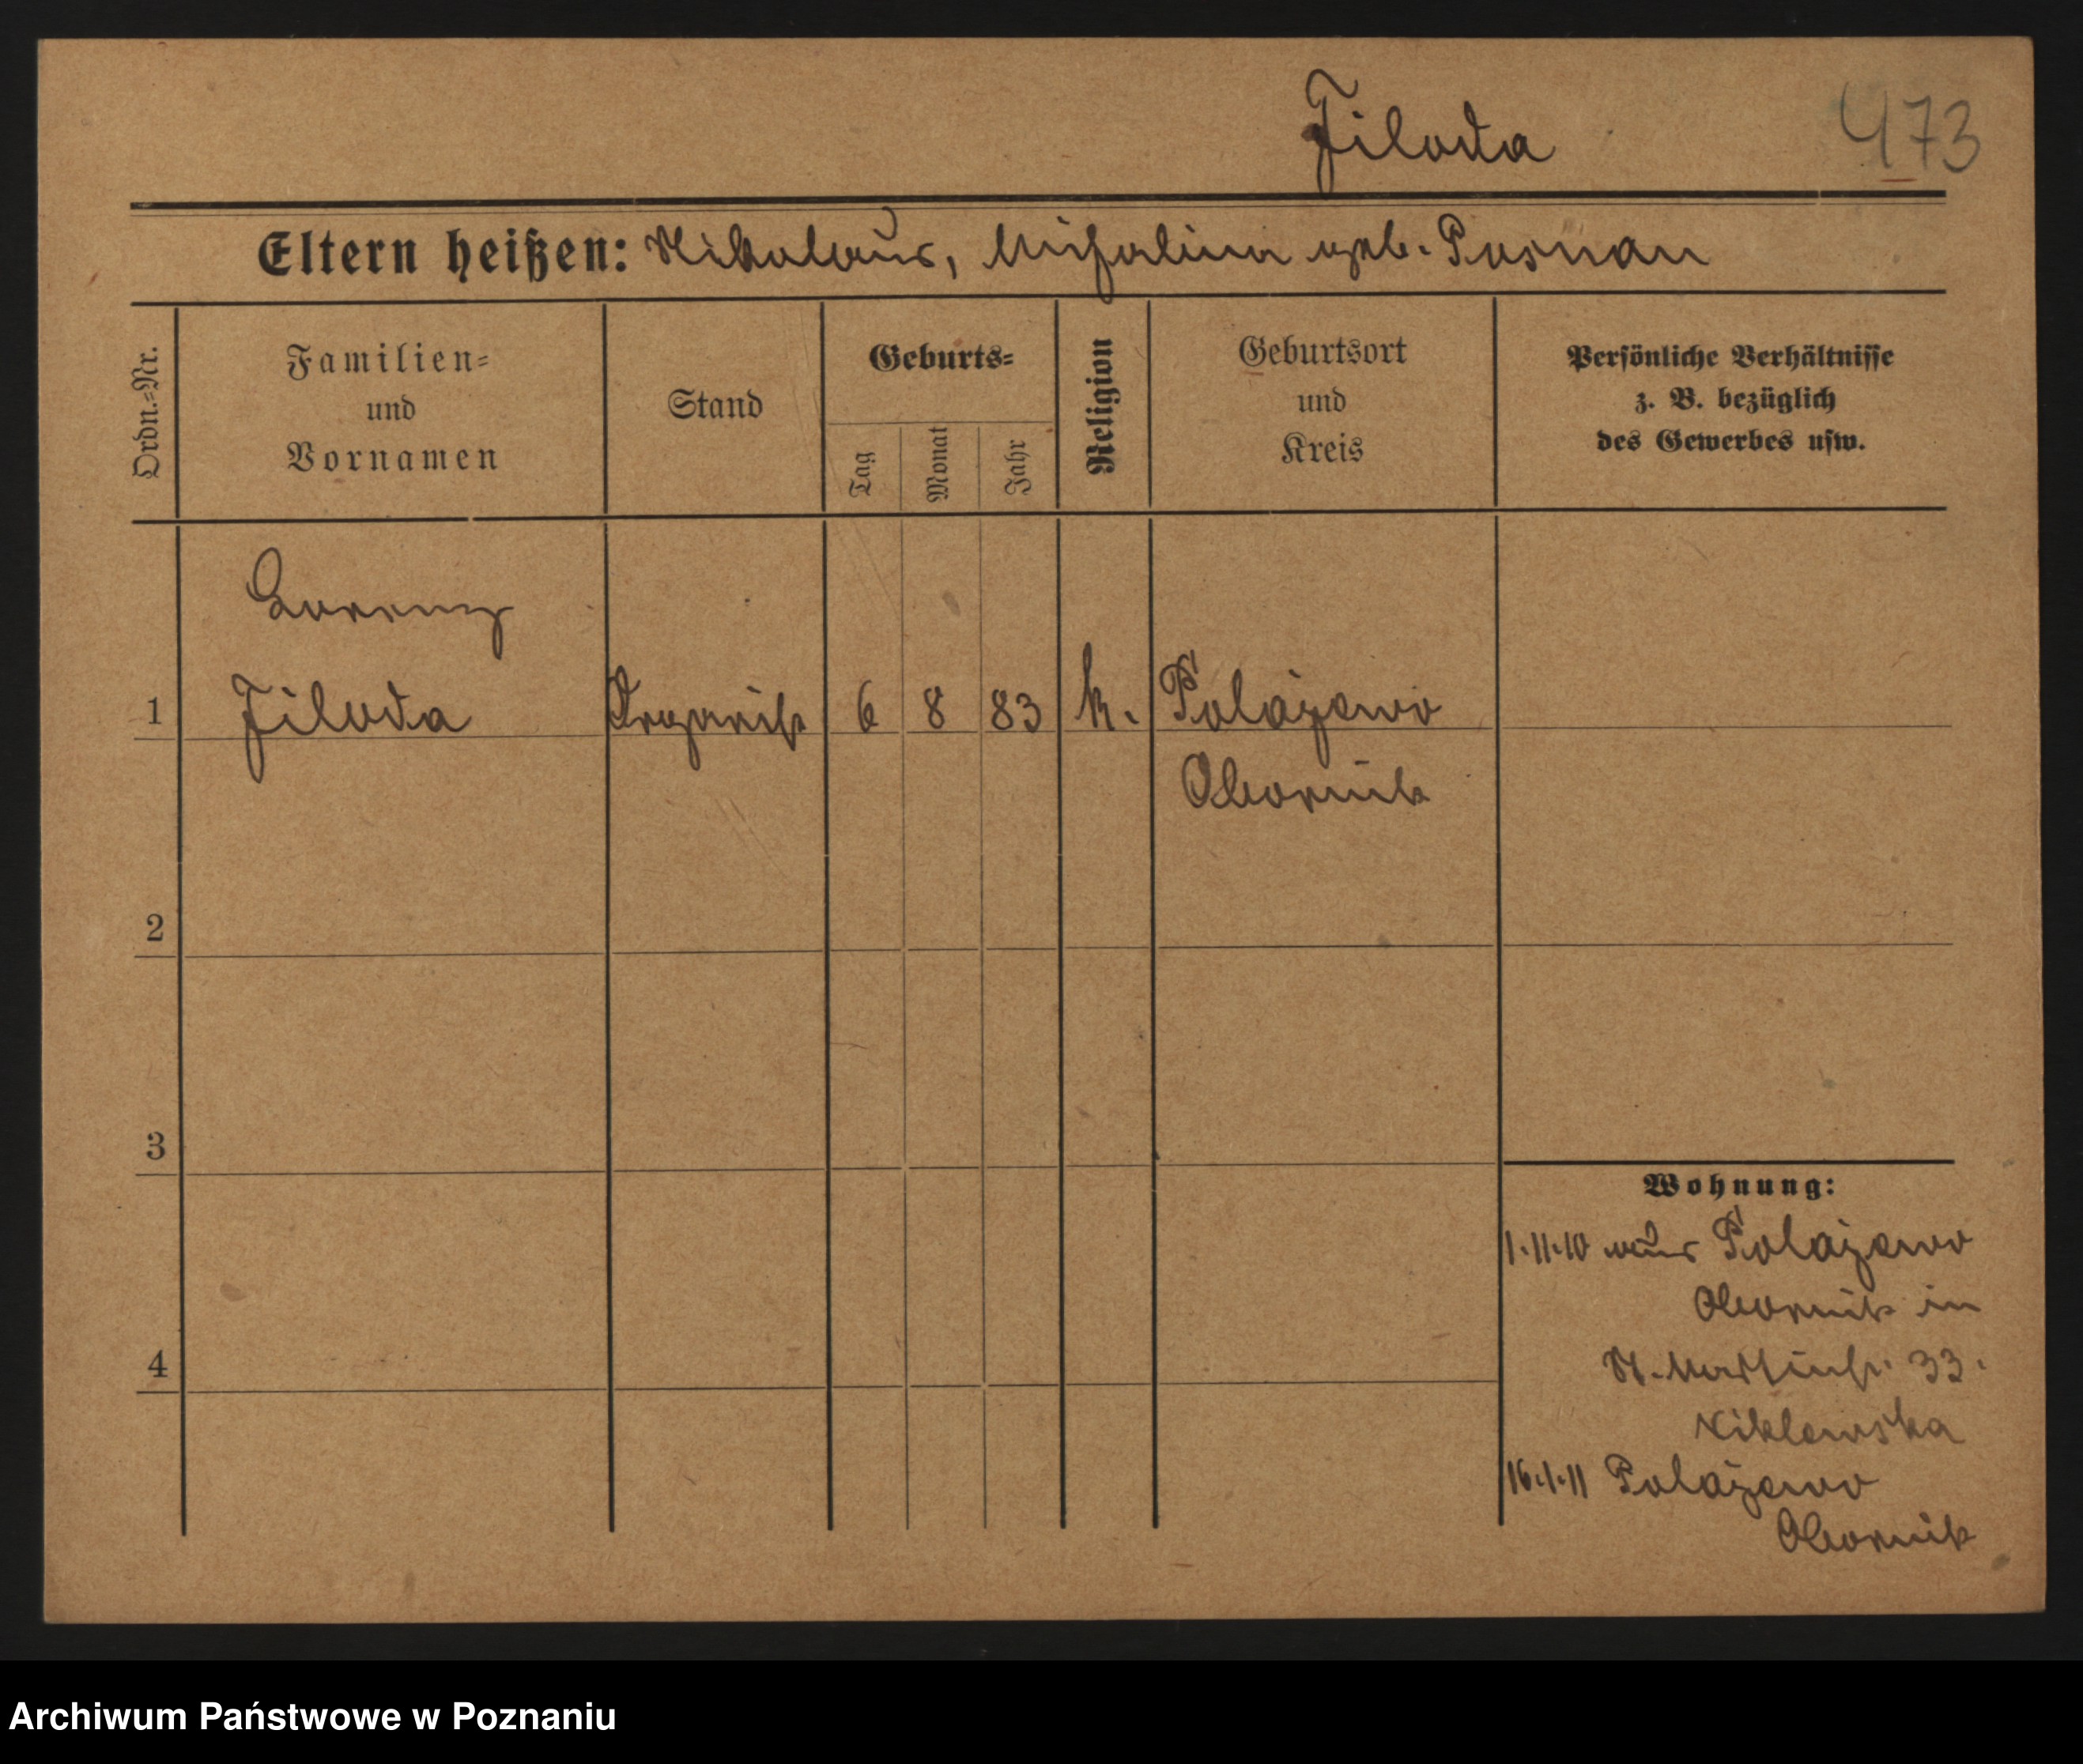 Filoda 473
Eltern heißen: Nikolaus, Michalina geb. Posnan
Ordn.-Nr. Familien- und Vornamen Stand Geburts- Tag Monat Jahr Religion Geburtsort und Kreis Persönliche Verhältnisse z. B. bezüglich des Gewerbes usw.
Lorenz
1 Filoda Organist 6 8 83 k. Polajewo
Obornik
2
3
Wohnung:
1.11.10 aus Polajewo
Obornik in
4 St. Martinstr. 33.
16.1.11 Polajewo
Obornik
Archiwum Państwowe w Poznaniu